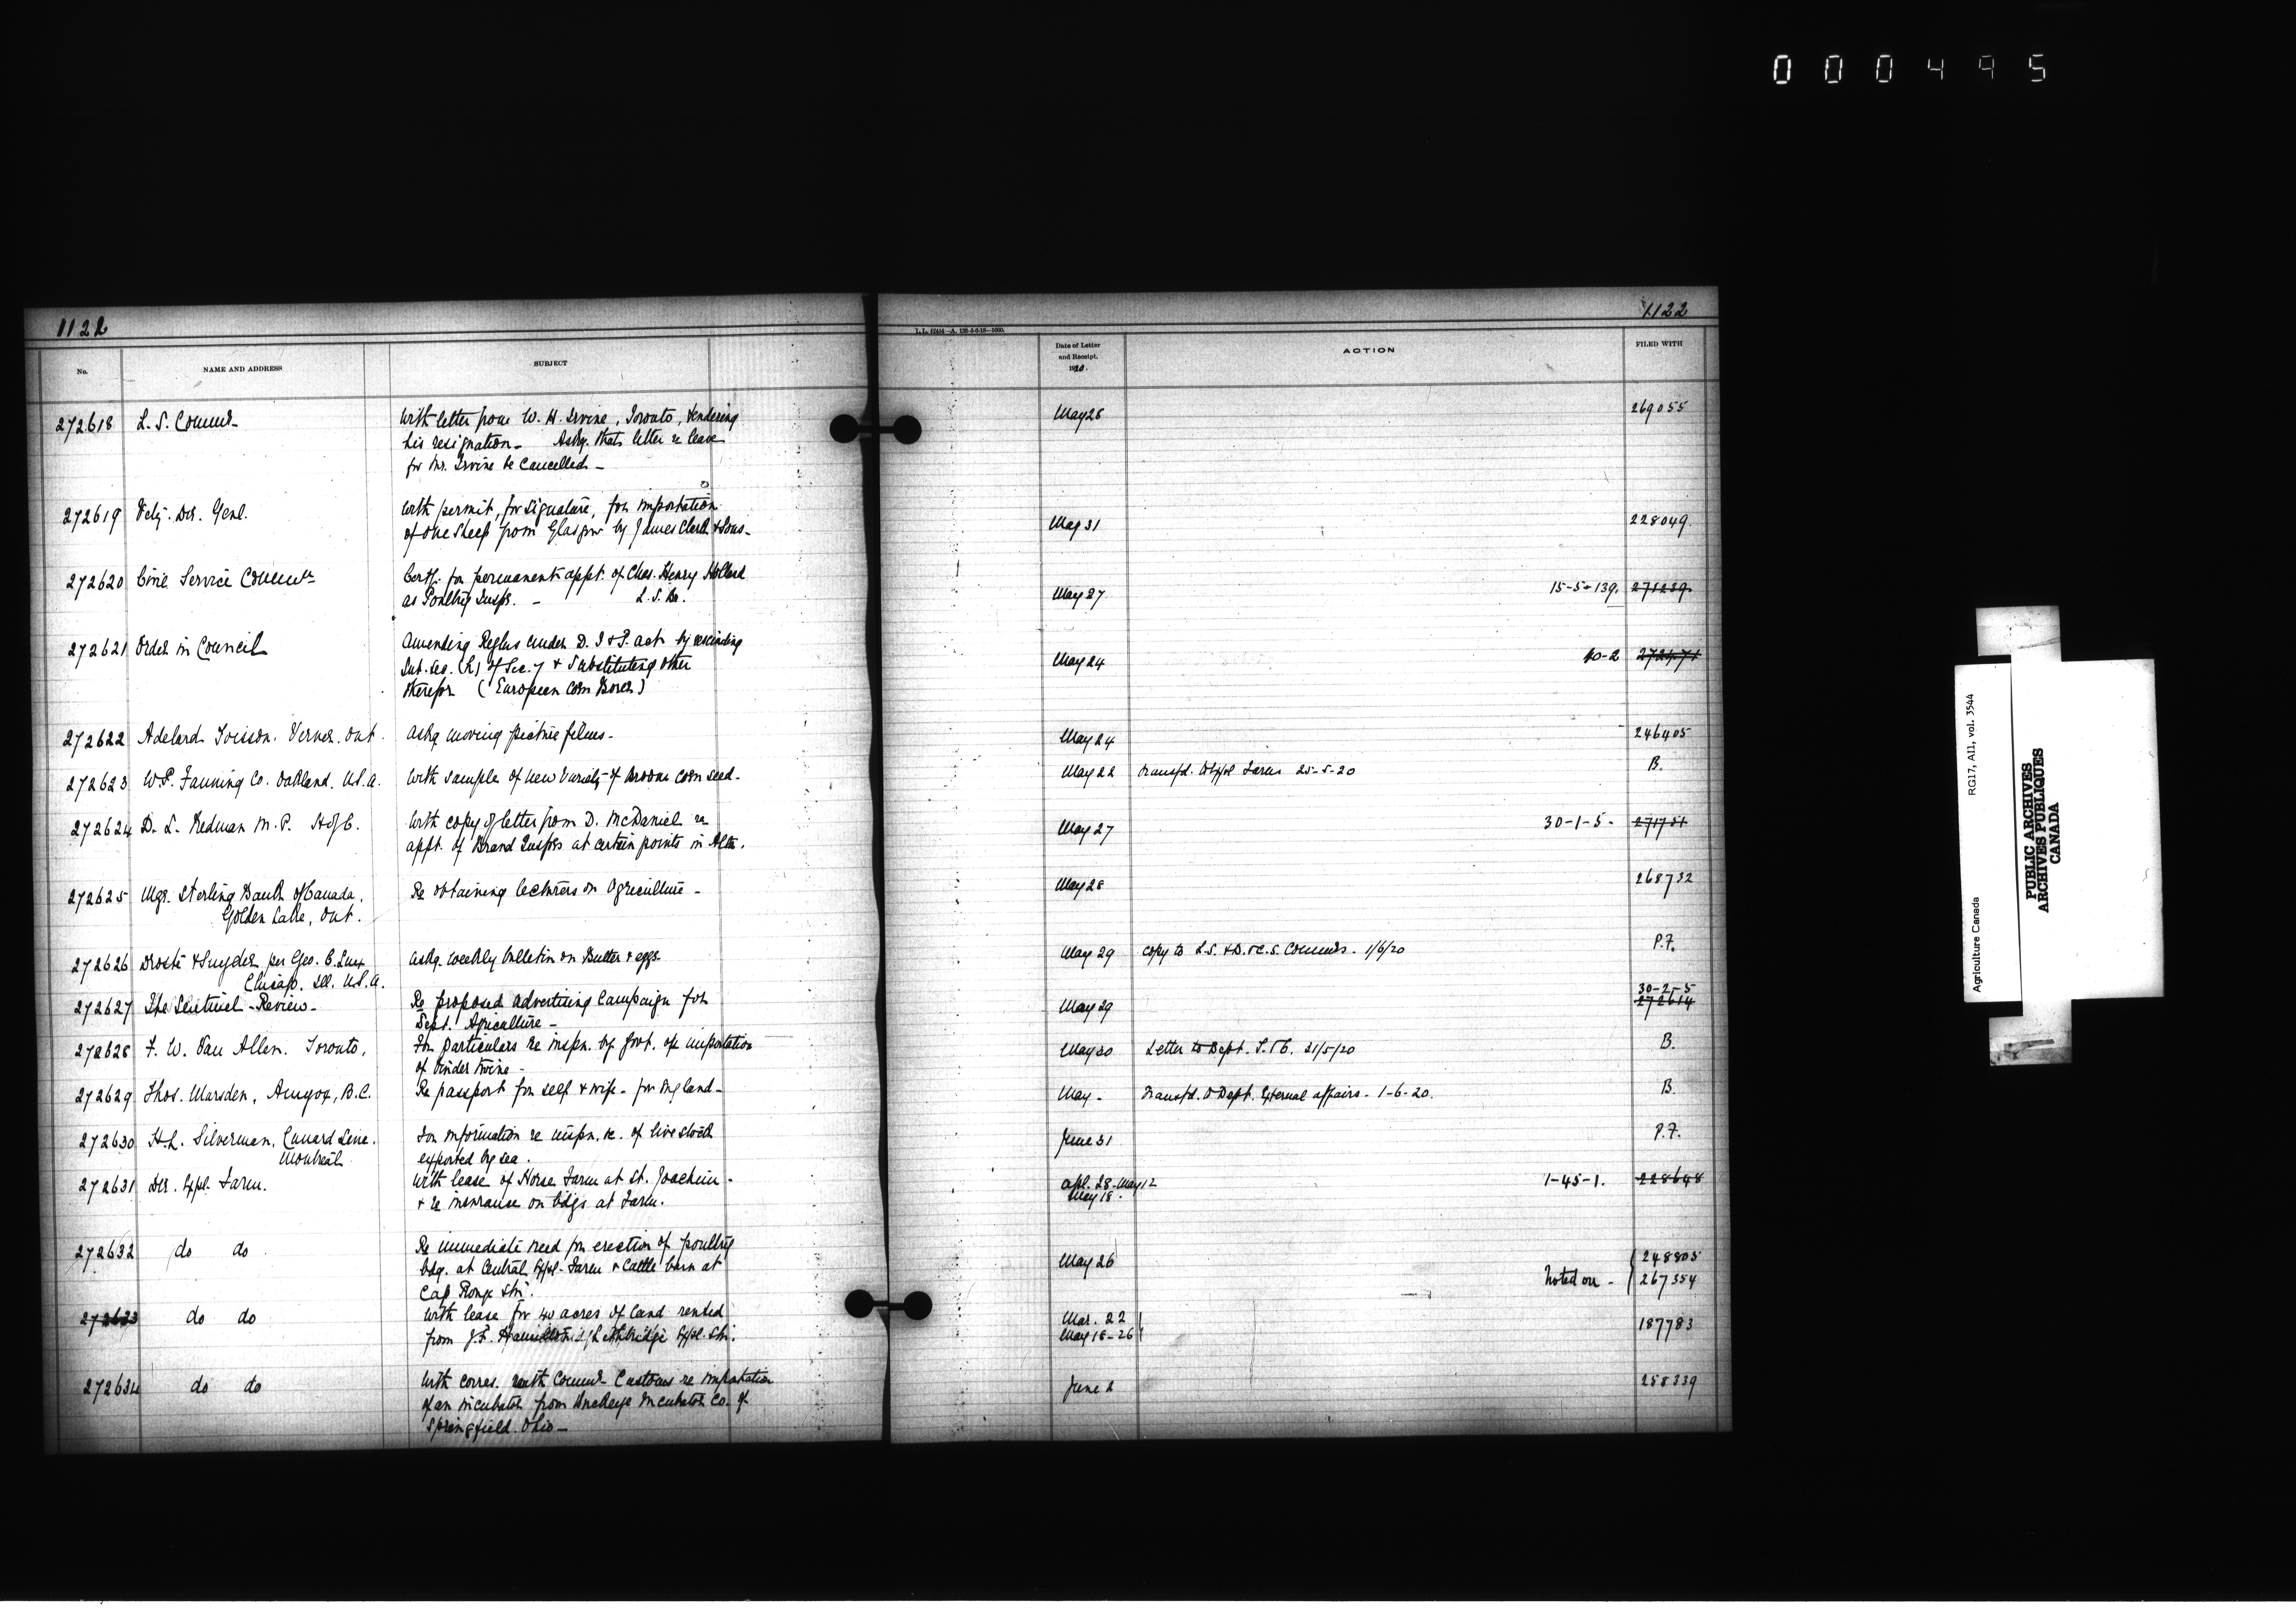 000495
1122
1122
L.L. 62454—A. 138-5-6-18—1000.
No.
NAME AND ADDRESS
SUBJECT
Date of Letter and Receipt. 1920.
ACTION
FILED WITH
272618 L. S. Commr
With letter from W. H. Irvine, Toronto, tendering
his resignation - Askg. that letter re leave
for Mr. Irvine be cancelled -
May 28
269055
272619 Vety. Dir. Genl.
With permit, for signature, for importation
of one sheep from Glasgow by James Clark & Sons -
May 31
228049.
272620 Civil Service Commn
Certf. for permanent appt. of Chas. Henry Hollard
as Poultry Inspr. - L. S. Br.
May 27
15-5-139. 271239.
272621 Order in Council
Amending Reglns under D. I & P. act by rescinding
Sub. sec. (h) of Sec. 7 & substituting other
therefor (European Corn Borer)
May 24
10-2 272471
272622 Adelard Voisson. Verner. Ont.
Askg. moving picture films -
May 24
246405
272623 W. P. Fanning Co. Oakland. U.S.A.
With sample of new variety of Broom corn seed -
May 22
Transfd. to Exptl Farms 25-5-20
B.
272624 D. L. Redman M. P. H of C.
With copy of letter from D. McDaniel re
appt. of Brand Insprs at certain points in Alta.
May 27
30-1-5 - 271751
272625 Mgr. Sterling Bank of Canada,
Golden Lake, Ont.
Re obtaining lecturers on Agriculture -
May 28
268732
272626 Droste & Snyder per Geo. E.
Chicago. Ill. U.S.A.
Askg. weekly bulletin on Butter & eggs.
May 29
Copy to L.S. & D. & C. S. Commrs. - 1/6/20
P.F.
272627 The Sentinel - Review -
Re proposed advertising Campaign for
Dept. Agriculture -
May 29
30-2-5
272614
272628 F. W. Van Allen. Toronto,
For particulars re inspn. by Govt. of importation
of binder twine -
May 30
Letter to Dept. T. & C. 31/5/20
B.
272629 Thos. Marsden, Anyox, B.C.
Re passport for self & wife - for England -
May -
Transfd. to Dept. External affairs - 1-6-20.
B.
272630 H. L. Silverman, Cunard Line.
Montreal
For information re inspn. &c. of live stock
exported by sea.
June 31
P.F.
272631 Dir. Exptl. Farm.
With lease of Horse Farm at St. Joachim -
& re insurance on bdgs at Farm.
Apl. 28 - May 12
May 18.
1-45-1. 228648
272632 do do
Re immediate need for erection of poultry
bdg. at Central Exptl. Farm & Cattle barn at
Cap Rouge Stn.
May 26
248805
Noted on - 267354
272633 do do
With lease for 40 acres of land rented
from J. F. Hamilton Lethbridge Exptl. Stn.
Mar. 22
May 18-26
187783
272634 do do
With corres. with Commr Customs re importation
of an incubator from Buckeye Incubator Co. of
Springfield. Ohio -
June 2
258339
Agriculture Canada
RG17, A11, vol. 3544
PUBLIC ARCHIVES
ARCHIVES PUBLIQUES
CANADA